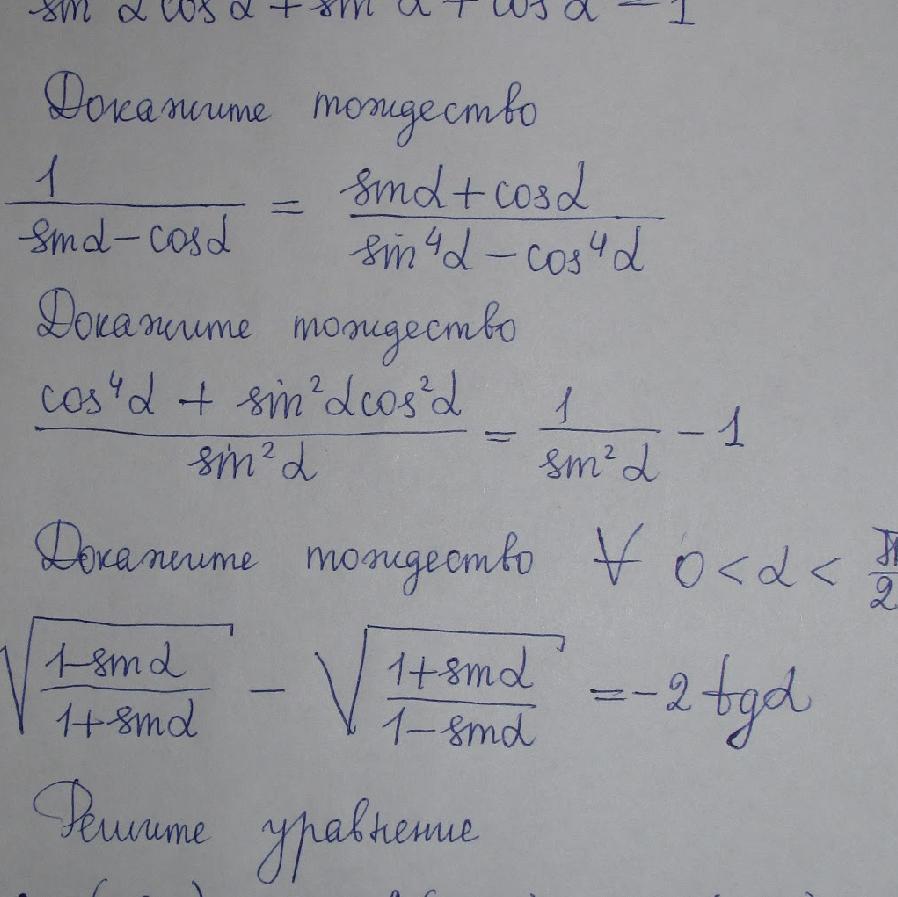 Докажите тождество
1/(sinα - cosα) = (sinα + cosα)/(sin⁴α - cos⁴α)
Докажите тождество
(cos⁴α + sin²αcos²α)/sin²α = 1/sin²α - 1
Докажите тождество ∀ 0 < α < π/2
√((1-sinα)/(1+sinα)) - √((1+sinα)/(1-sinα)) = -2 tgα
Решите уравнение